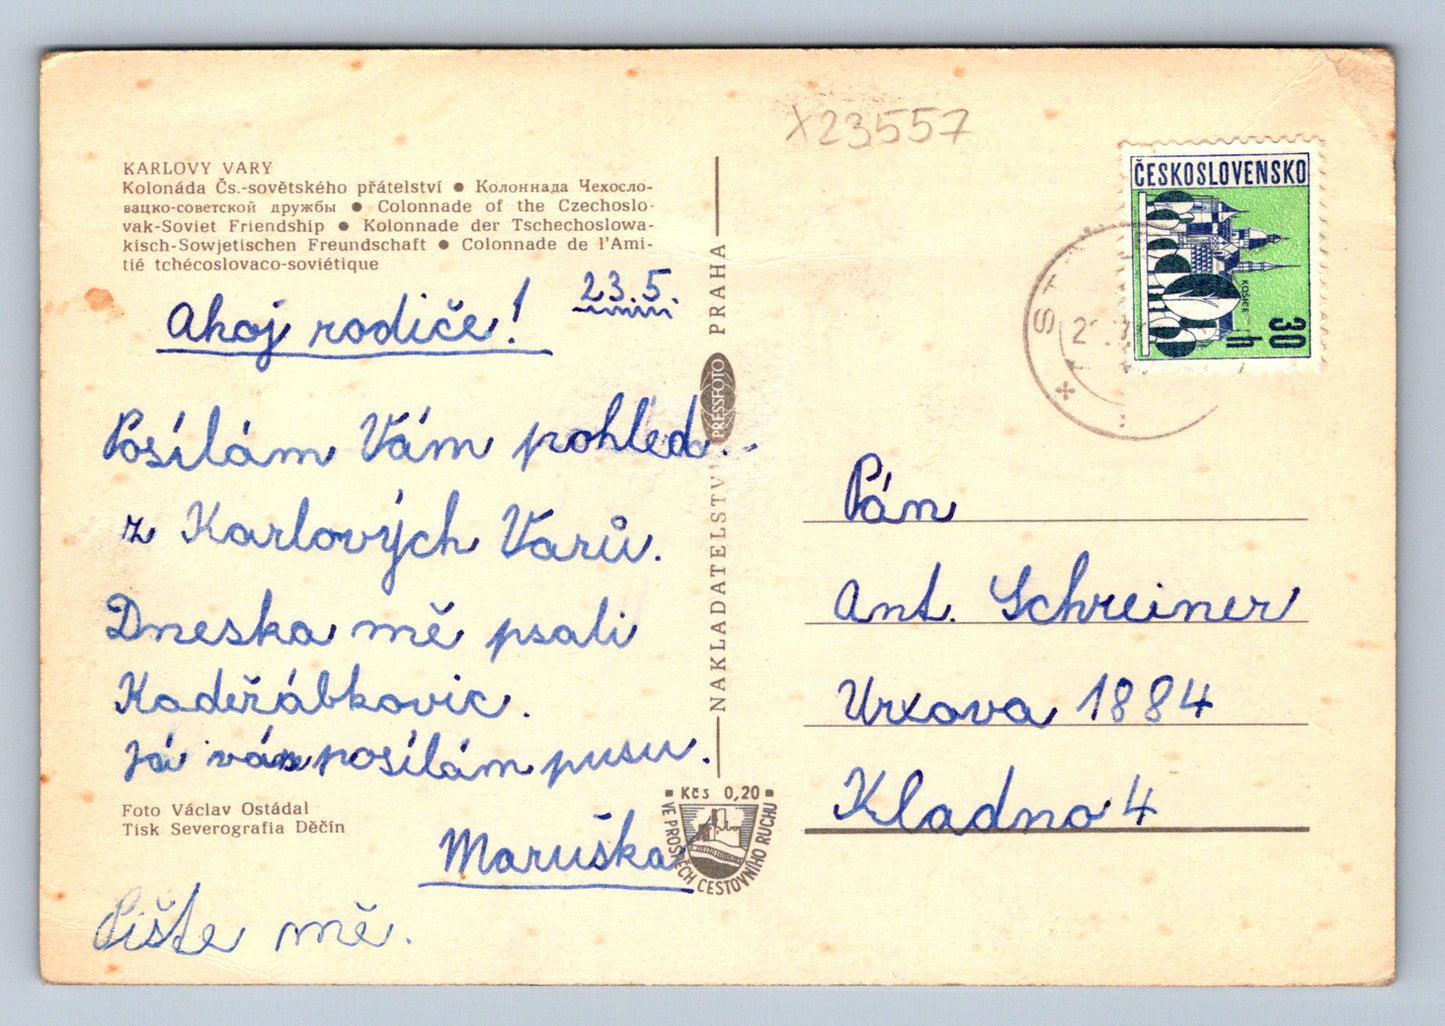 x23557
KARLOVY VARY
Kolonáda Čs.-sovětského přátelství ● Колоннада Чехосло-
вацко-советской дружбы ● Colonnade of the Czechoslo-
vak-Soviet Friendship ● Kolonnade der Tschechoslowa-
kisch-Sowjetischen Freundschaft ● Colonnade de l'Ami-
tié tchécoslovaco-soviétique
23.5.
Ahoj rodiče!
Posílám Vám pohled
z Karlových Varů.
Dneska mě psali
Kadeřábkovic.
Já vám posílám pusu.
Maruška
Pište mě.
Foto Václav Ostádal
Tisk Severografia Děčín
NAKLADATELSTVÍ PRESSFOTO PRAHA
Kčs 0,20
VE PROSPĚCH CESTOVNÍHO RUCHU
ČESKOSLOVENSKO
KOŠICE
30 h
Pán
Ant. Schreiner
Urxova 1884
Kladno 4